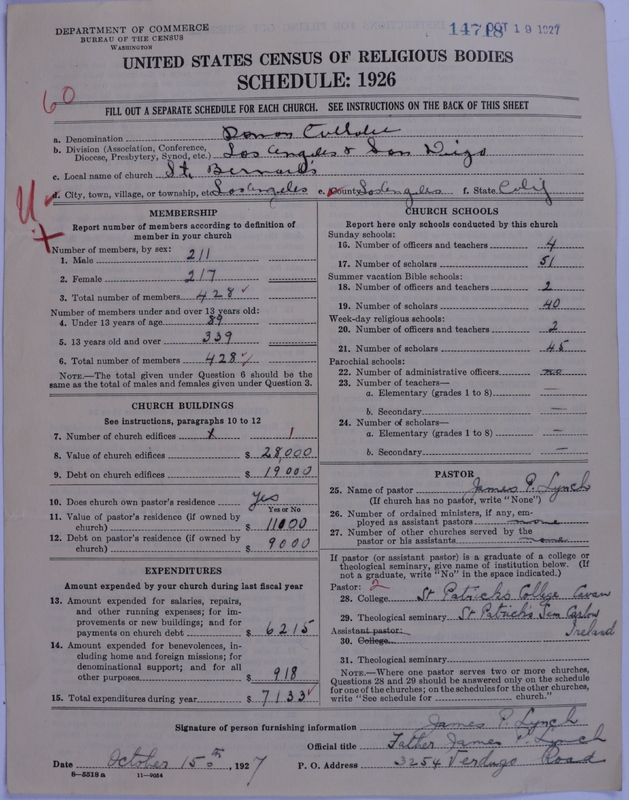 DEPARTMENT OF COMMERCE
BUREAU OF THE CENSUS
WASHINGTON
14718 OCT 19 1927
UNITED STATES CENSUS OF RELIGIOUS BODIES
SCHEDULE: 1926
60
FILL OUT A SEPARATE SCHEDULE FOR EACH CHURCH. SEE INSTRUCTIONS ON THE BACK OF THIS SHEET
a. Denomination Roman Catholic
b. Division (Association, Conference, Diocese, Presbytery, Synod, etc.) Los Angeles & San Diego
c. Local name of church St. Bernard's
d. City, town, village, or township, etc. Los Angeles e. County Los Angeles f. State Calif
MEMBERSHIP
Report number of members according to definition of
member in your church
Number of members, by sex:
1. Male 211
2. Female 217
3. Total number of members 428
Number of members under and over 13 years old:
4. Under 13 years of age 89
5. 13 years old and over 339
6. Total number of members 428
NOTE.—The total given under Question 6 should be the
same as the total of males and females given under Question 3.
CHURCH BUILDINGS
See instructions, paragraphs 10 to 12
7. Number of church edifices x 1
8. Value of church edifices $ 28,000
9. Debt on church edifices $ 19000
10. Does church own pastor's residence Yes
Yes or No
11. Value of pastor's residence (if owned by
church) $ 11000
12. Debt on pastor's residence (if owned by
church) $ 9000
EXPENDITURES
Amount expended by your church during last fiscal year
13. Amount expended for salaries, repairs,
and other running expenses; for im-
provements or new buildings; and for
payments on church debt $ 6215
14. Amount expended for benevolences, in-
cluding home and foreign missions; for
denominational support; and for all
other purposes $ 918
15. Total expenditures during year $ 7133
CHURCH SCHOOLS
Report here only schools conducted by this church
Sunday schools:
16. Number of officers and teachers 4
17. Number of scholars 51
Summer vacation Bible schools:
18. Number of officers and teachers 2
19. Number of scholars 40
Week-day religious schools:
20. Number of officers and teachers 2
21. Number of scholars 45
Parochial schools:
22. Number of administrative officers
23. Number of teachers—
a. Elementary (grades 1 to 8) —
b. Secondary —
24. Number of scholars—
a. Elementary (grades 1 to 8) —
b. Secondary —
PASTOR
25. Name of pastor James P. Lynch
(If church has no pastor, write "None")
26. Number of ordained ministers, if any, em-
ployed as assistant pastors none
27. Number of other churches served by the
pastor or his assistants none
If pastor (or assistant pastor) is a graduate of a college or
theological seminary, give name of institution below. (If
not a graduate, write "No" in the space indicated.)
Pastor: 2
28. College St Patricks College Cavan
29. Theological seminary St Patrick's Sem Carlow
Assistant pastor: Ireland
30. College
31. Theological seminary
NOTE.—Where one pastor serves two or more churches,
Questions 28 and 29 should be answered only on the schedule
for one of the churches; on the schedules for the other churches,
write "See schedule for church."
Signature of person furnishing information James P. Lynch
Official title Father James P. Lynch
Date October 15th, 1927 P. O. Address 3254 Verdugo Road
8—5518 a 11—9064